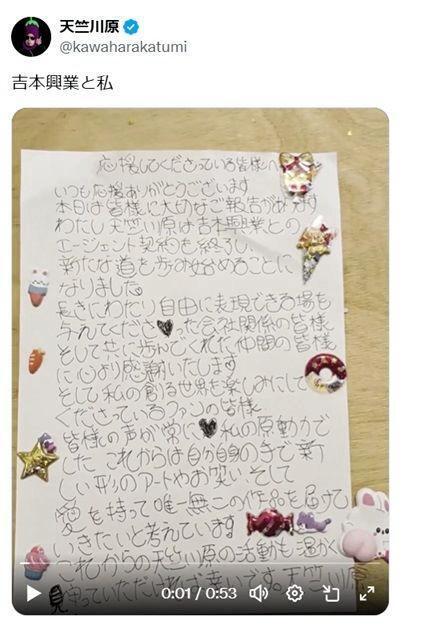 天竺川原
@kawaharakatumi
吉本興業と私
応援してくださっている皆様へ
いつも応援ありがとうございます
本日は皆様に大切なご報告があります
わたし天竺川原は吉本興業との
エージェント契約を終了し
新たな道を歩み始めることに
なりました。
長きにわたり自由に表現できる場を
与えてくださった会社関係の皆様
そして共に歩んでくれた仲間の皆様
に心より感謝いたします
そして私の創る世界を楽しみにして
くださっているファンの皆様
皆様の声が常に私の原動力で
した これからは自分自身の手で新
しい形のアートやお笑いそして
愛を持って唯一無二の作品を届けて
いきたいと考えています
これからの天竺川原の活動も温かく
見守っていただければ幸いです。天竺川原
0:01 / 0:53